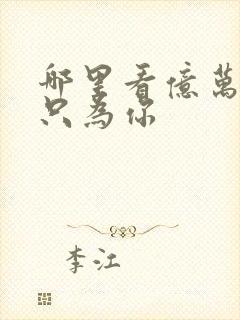 哪里看億萬
只為你
李江